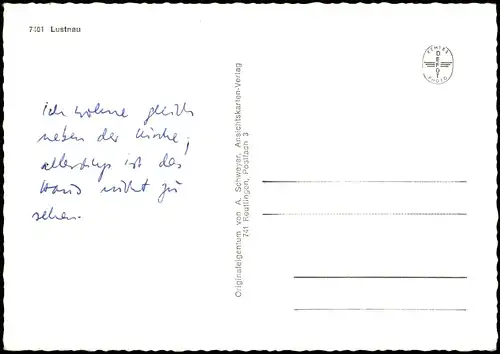 7401 Lustnau
ECHTES
DEFOT
PHOTO
ich wohne gleich
neben der Kirche;
allerdings ist das
Haus nicht zu
sehen.
Originaleigentum von A. Schwayer, Ansichtskarten-Verlag
741 Reutlingen, Postfach 3